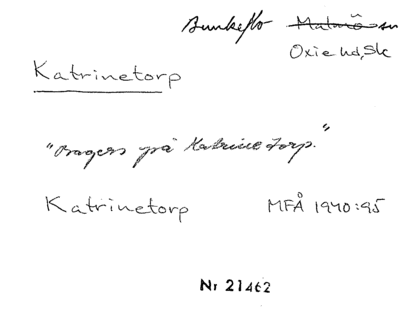 Bunkeflo Malmö sn
Oxie hd, Sk
Katrinetorp
"Bagers på Katrinetorp."
Katrinetorp MFÅ 1940:95
Nr 21462